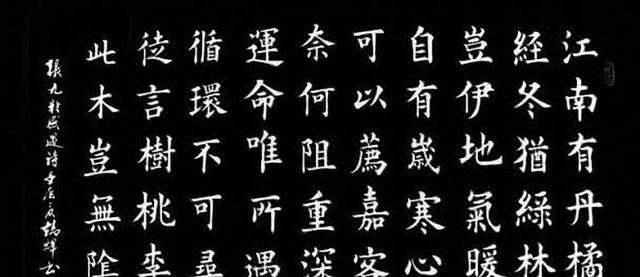 江南有丹橘
經冬猶綠林
豈伊地氣暖
自有歲寒心
可以薦嘉客
奈何阻重深
運命唯所遇
循環不可尋
徒言樹桃李
此木豈無陰
張九齡感遇詩